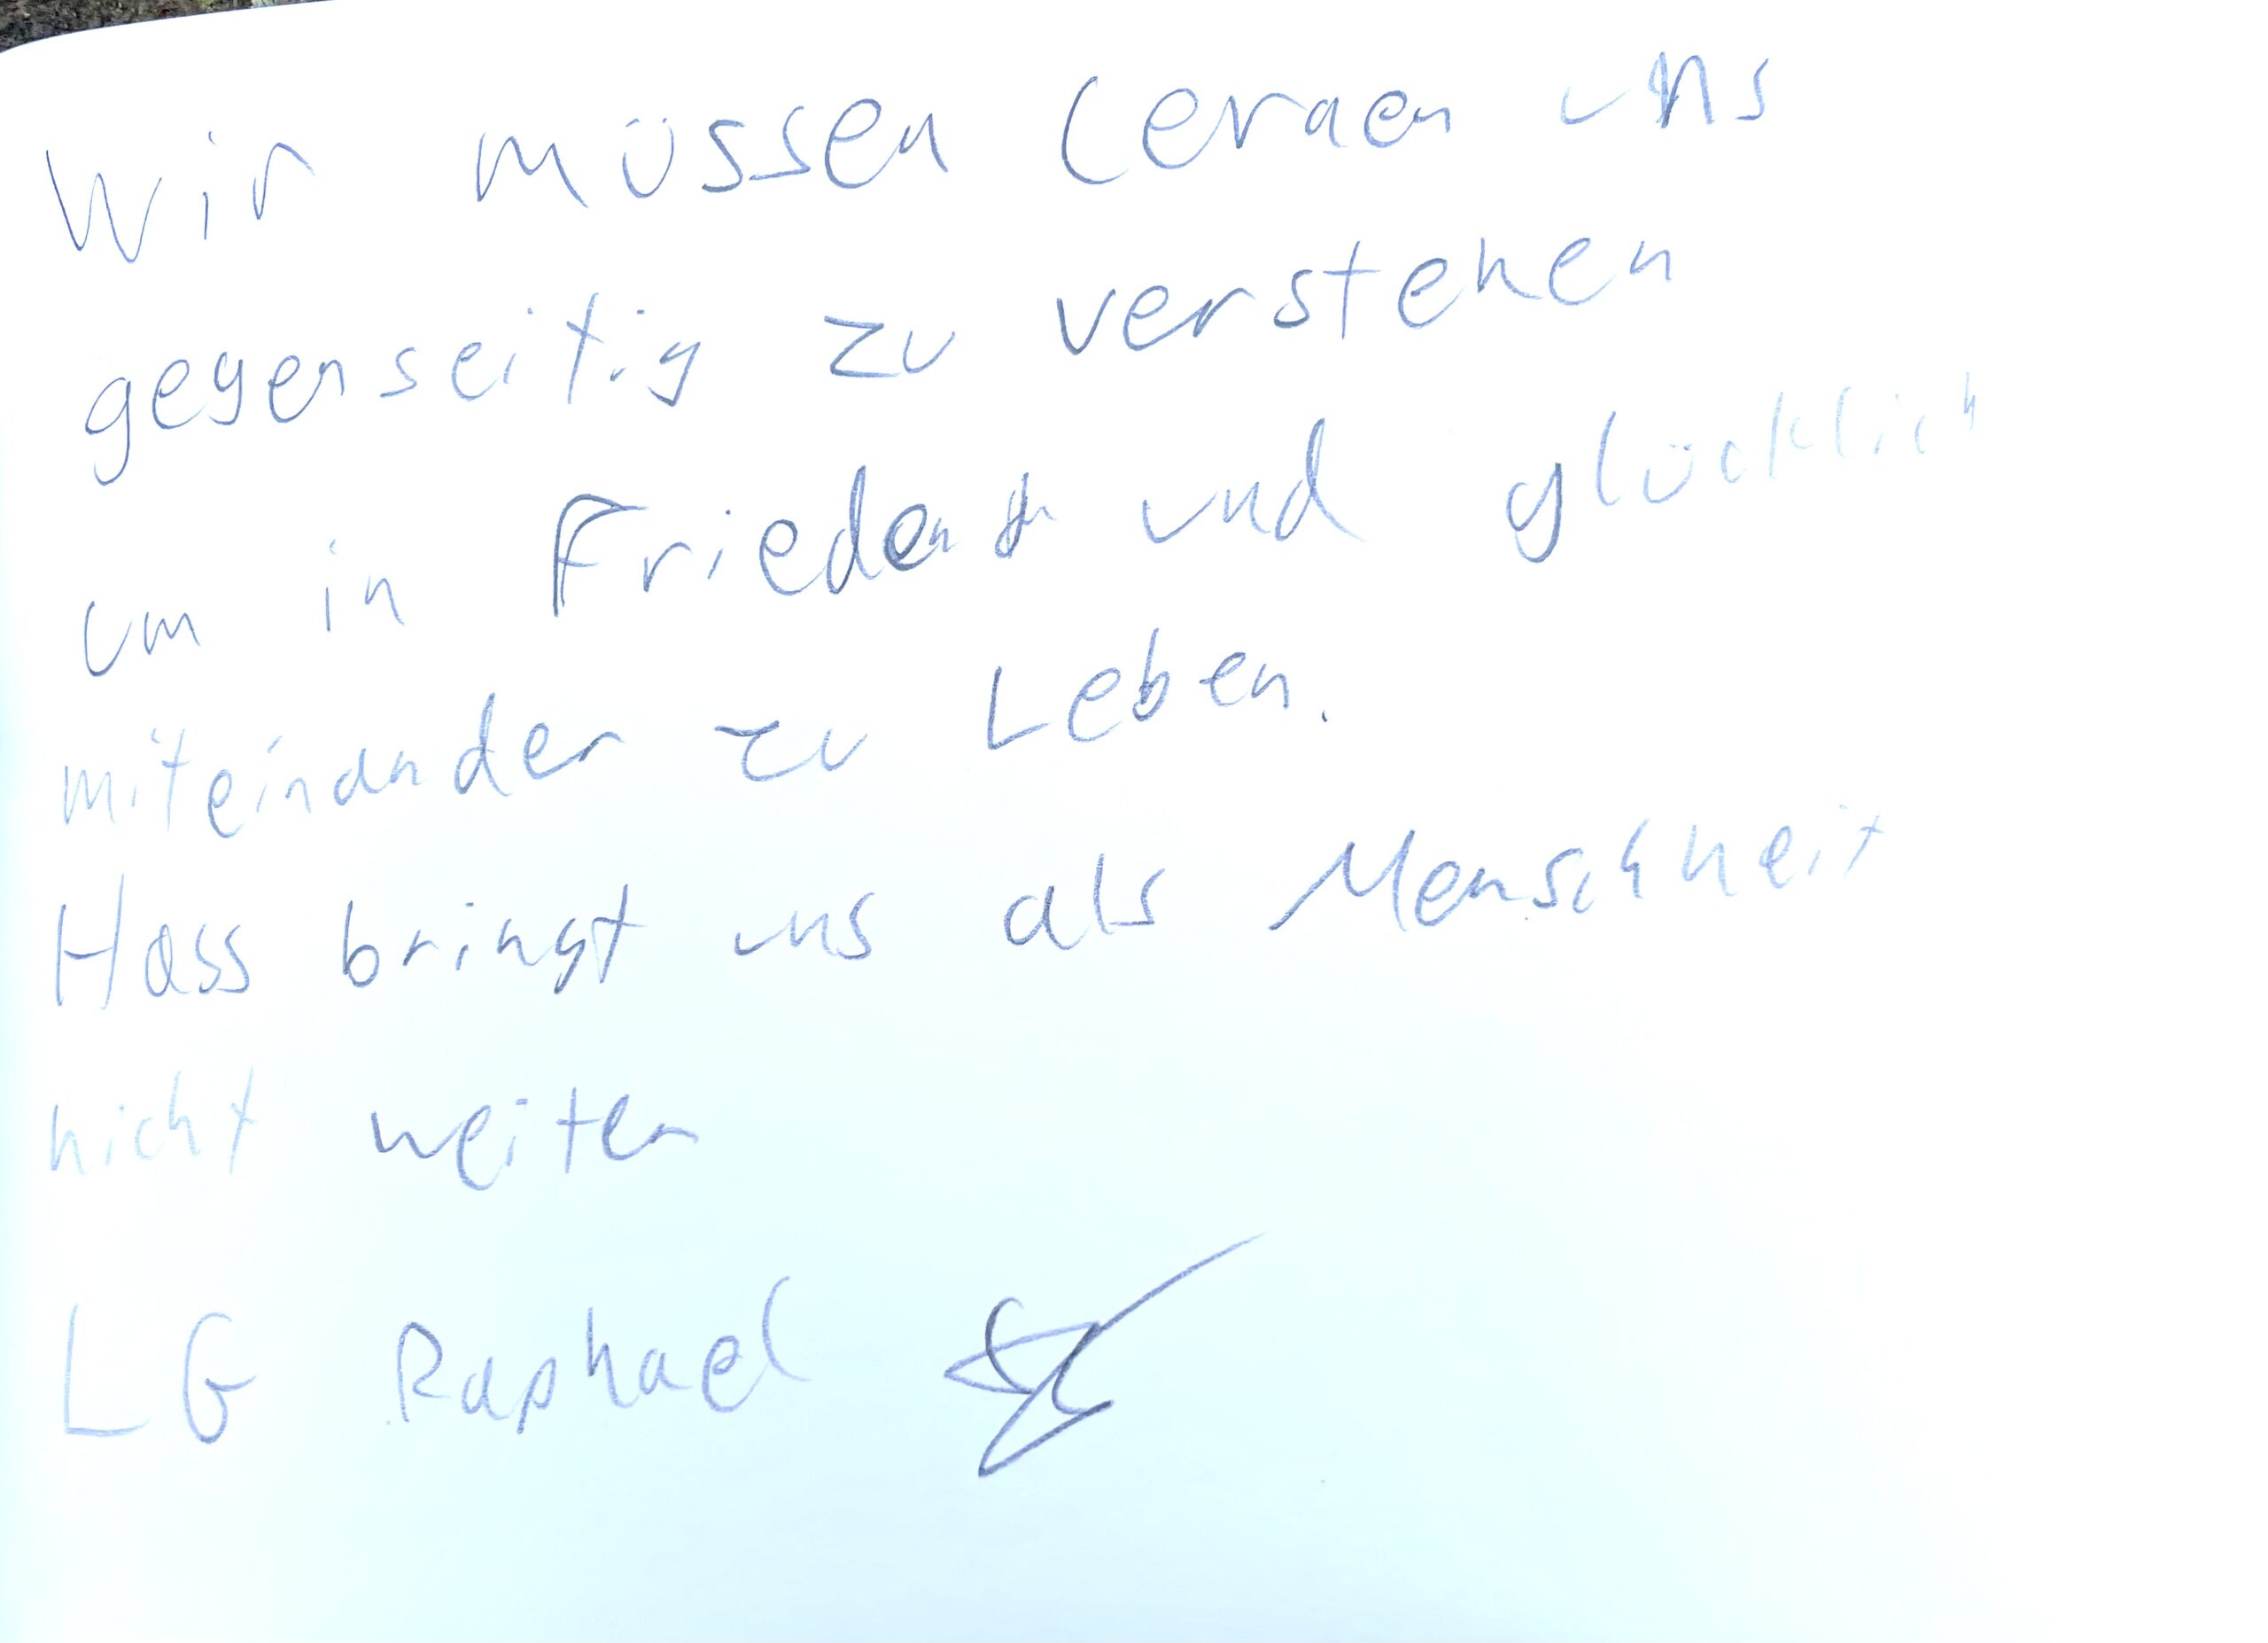 Wir müssen lernen uns
gegenseitig zu verstehen
um in Frieden und glücklich
miteinander zu Leben.
Hass bringt uns als Menschheit
nicht weiter
LG Raphael